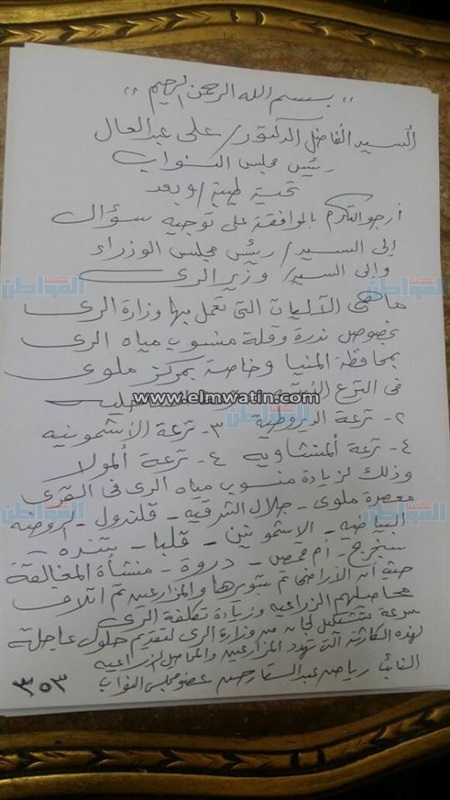 ،، بسم الله الرحمن الرحيم ،،
السيد الفاضل الدكتور/ على عبدالعال
رئيس مجلس النواب
تحية طيبة/ وبعد
أرجو التكرم بالموافقة على توجيه سؤال
إلى السيد/ رئيس مجلس الوزراء
وإلى السيد/ وزير الرى
ما هى الآليات التى تعمل بها وزارة الرى
بخصوص ندرة وقلة منسوب مياه الرى
بمحافظة المنيا وخاصة بمركز ملوى
فى الترع
www.elmwatin.com
٢- ترعة الديروطية ٣- ترعة الأشمونيه
٤- ترعة المنشاويه ٤- ترعة المولا
وذلك لزيادة منسوب مياه الرى فى القرى
معصرة ملوى - جلال الشرقيه - قلندول - الروضه
البياضيه - الاشمونين - قلبا - بتنده -
سنجرج - أم قمص - دروة - منشأة المغالقة
حيث أن الأراضى تم تبويرها والمزارعين تم اتلاف
محاصيلهم الزراعيه وزيادة تكلفة الرى
سرعة تشكيل لجان من وزارة الرى لتقديم حلول عاجلة
لهذه الكارثة التى تهدد المزارعين والمحاصيل الزراعيه
النائب/ رياض عبدالستار حسن عضو مجلس النواب
٣٥٣
المواطن